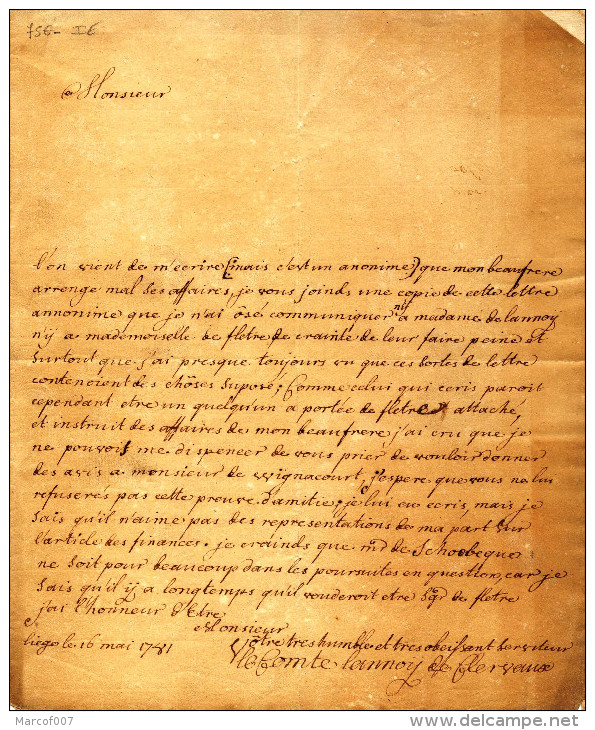 Monsieur
l'on vient de m'ecrire [mais c'est un anonime] que mon beaufrere
arrenge mal ses affaires, je vous joinds une copie de cette lettre
annonime que je n'ai ôsé communiquer ni a madame de lannoy
n'ij a mademoiselle de fletre de crainte de leur faire peine et
surtout que j'ai presque toujours vu que ces sortes de lettre
contenoient des chôses suposé; Comme celui qui ecris paroit
cependant etre un quelqu'un a portée de fletre attaché,
et instruit des affaires de mon beaufrere j'ai cru que je
ne pouvois me dispencer de vous prier de vouloir donner
des avis a monsieur de wignacourt, j'espere que vous ne lui
refuserés pas cette preuve d'amitie; je lui en ecris, mais je
sais qu'il n'aime pas des representations de ma part sur
l'article des finances. je crainds que mr de Schoebeque
ne soit pour beaucoup dans les poursuites en question, car je
sais qu'il ij a longtemps qu'il vouderoit etre sgr de fletre
j'ai l'honneur d'Etre
Monsieur
liege le 16 mai 1781
Vôtre tres humble et tres obeissant serviteur
le Comte lannoy de Clervaux
Marcof007
delcampe.net